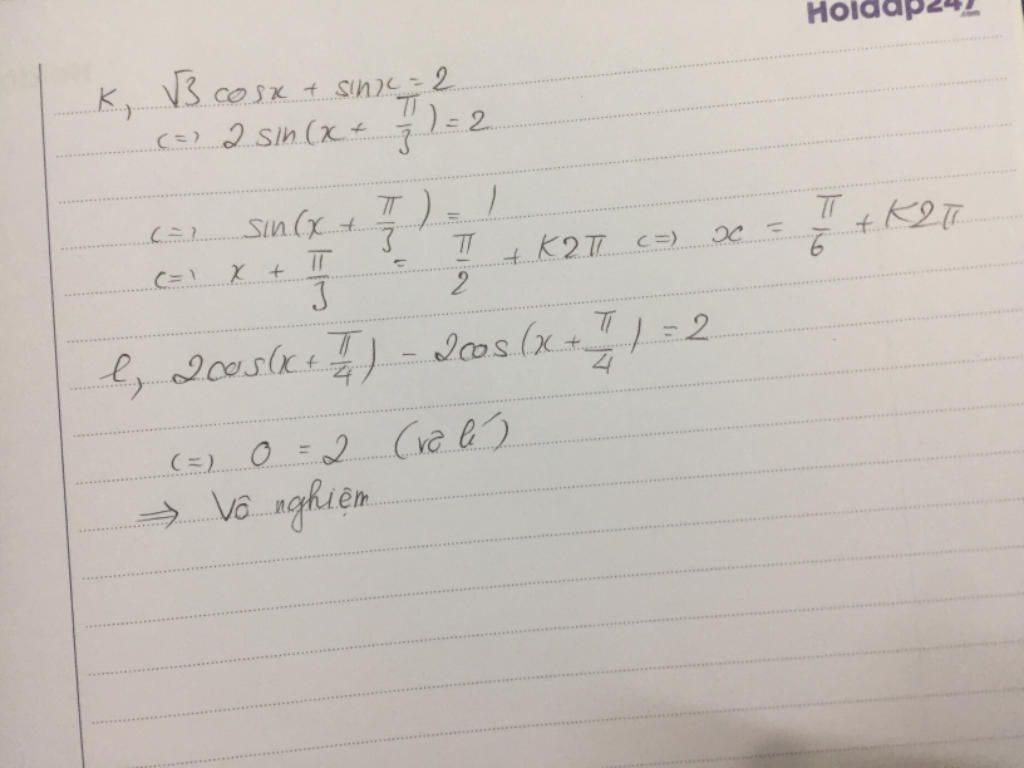 Hoidap247
.com
K, √3 cosx + sinx = 2
<=> 2 sin(x + π/3) = 2
<=> sin(x + π/3) = 1
<=> x + π/3 = π/2 + K2π <=> x = π/6 + K2π
l, 2cos(x + π/4) - 2cos(x + π/4) = 2
<=> 0 = 2 (vô lí)
=> Vô nghiệm